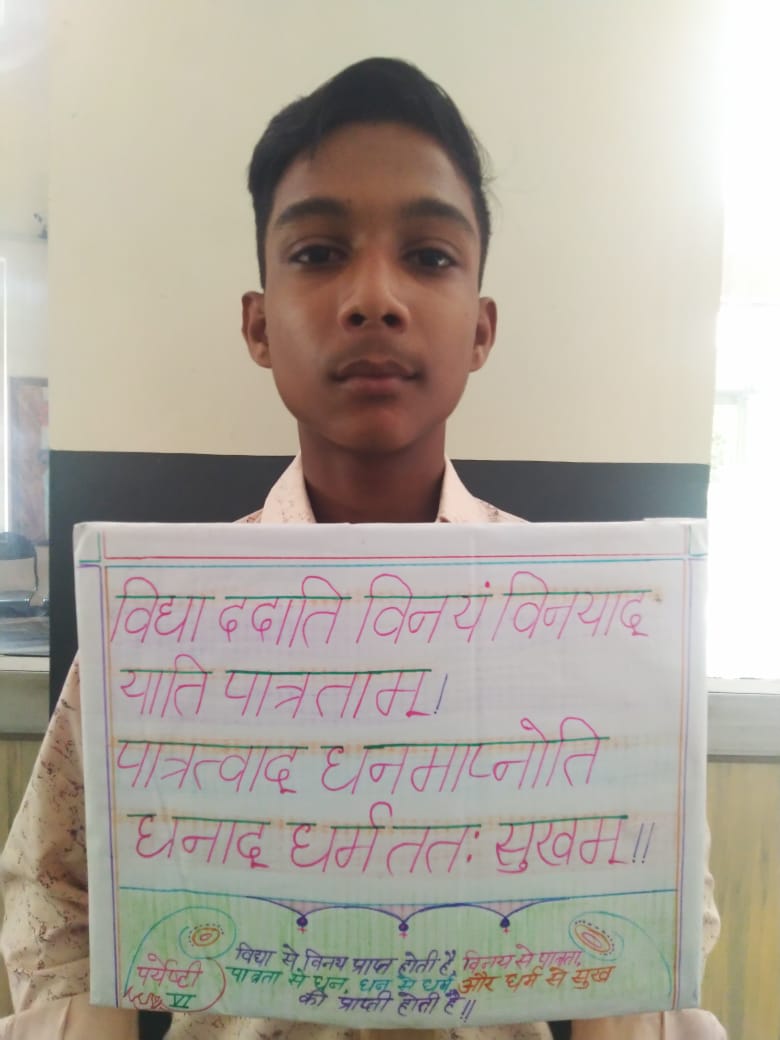 विद्या ददाति विनयं विनयाद्
याति पात्रताम्।
पात्रत्वाद् धनमाप्नोति
धनाद् धर्म ततः सुखम्॥
विद्या से विनय प्राप्त होती है, विनय से पात्रता,
पात्रता से धन, धन से धर्म और धर्म से सुख
की प्राप्ती होती है॥
पर्येष्टी
VI